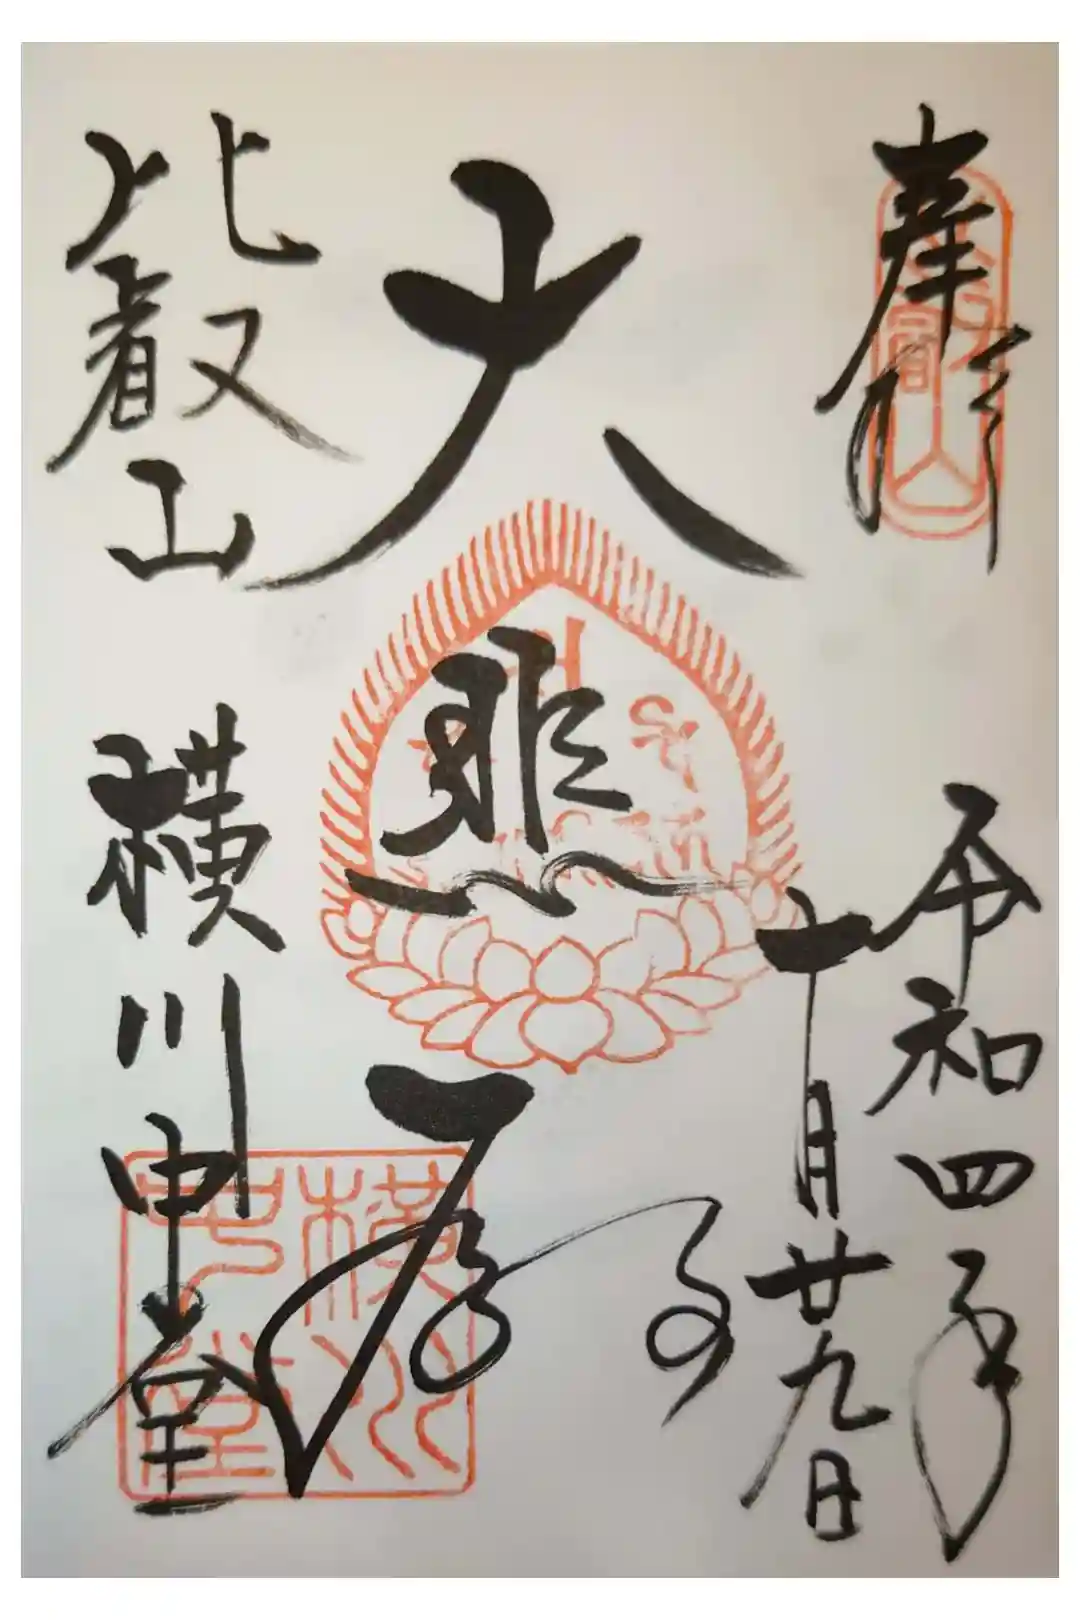 奉拝
比叡山
令和四年
十月廿九日
大悲殿
比叡山 横川中堂
横川中堂